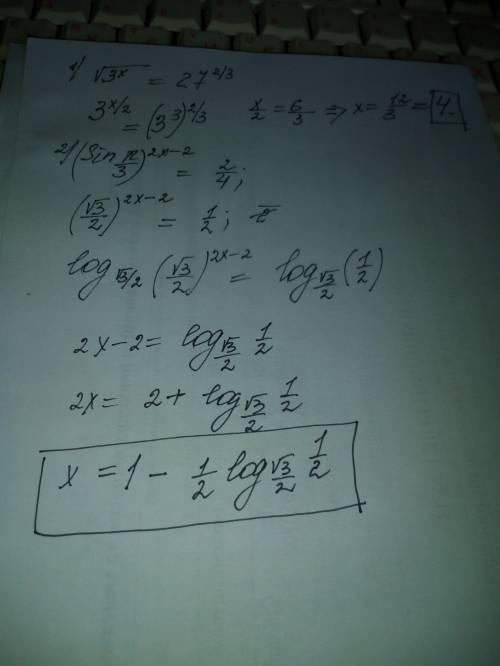 1) √3ˣ = 27^2/3
3^x/2 = (3³)^2/3 x/2 = 6/3 ⇒ x = 12/3 = 4.
2) (Sin π/3)^2x-2 = 2/4;
(√3/2)^2x-2 = 1/2;
log_√3/2 (√3/2)^2x-2 = log_√3/2 (1/2)
2x-2 = log_√3/2 1/2
2x = 2 + log_√3/2 1/2
x = 1 - 1/2 log_√3/2 1/2